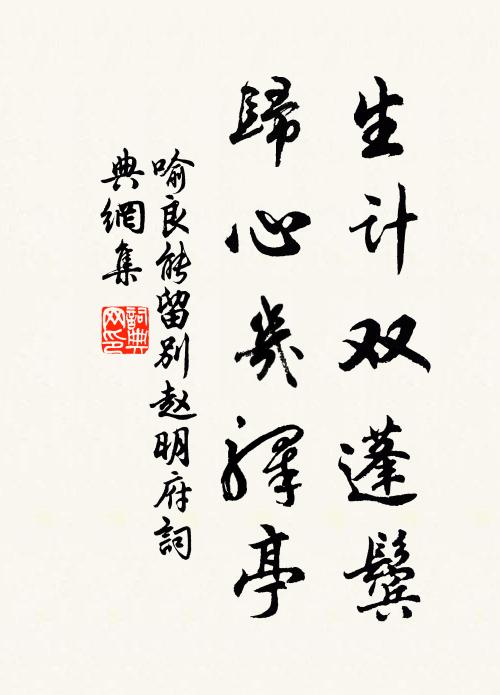 生计双蓬鬓
歸心几驛亭
喻良能留別赵明府詞
典網集
詞典网印